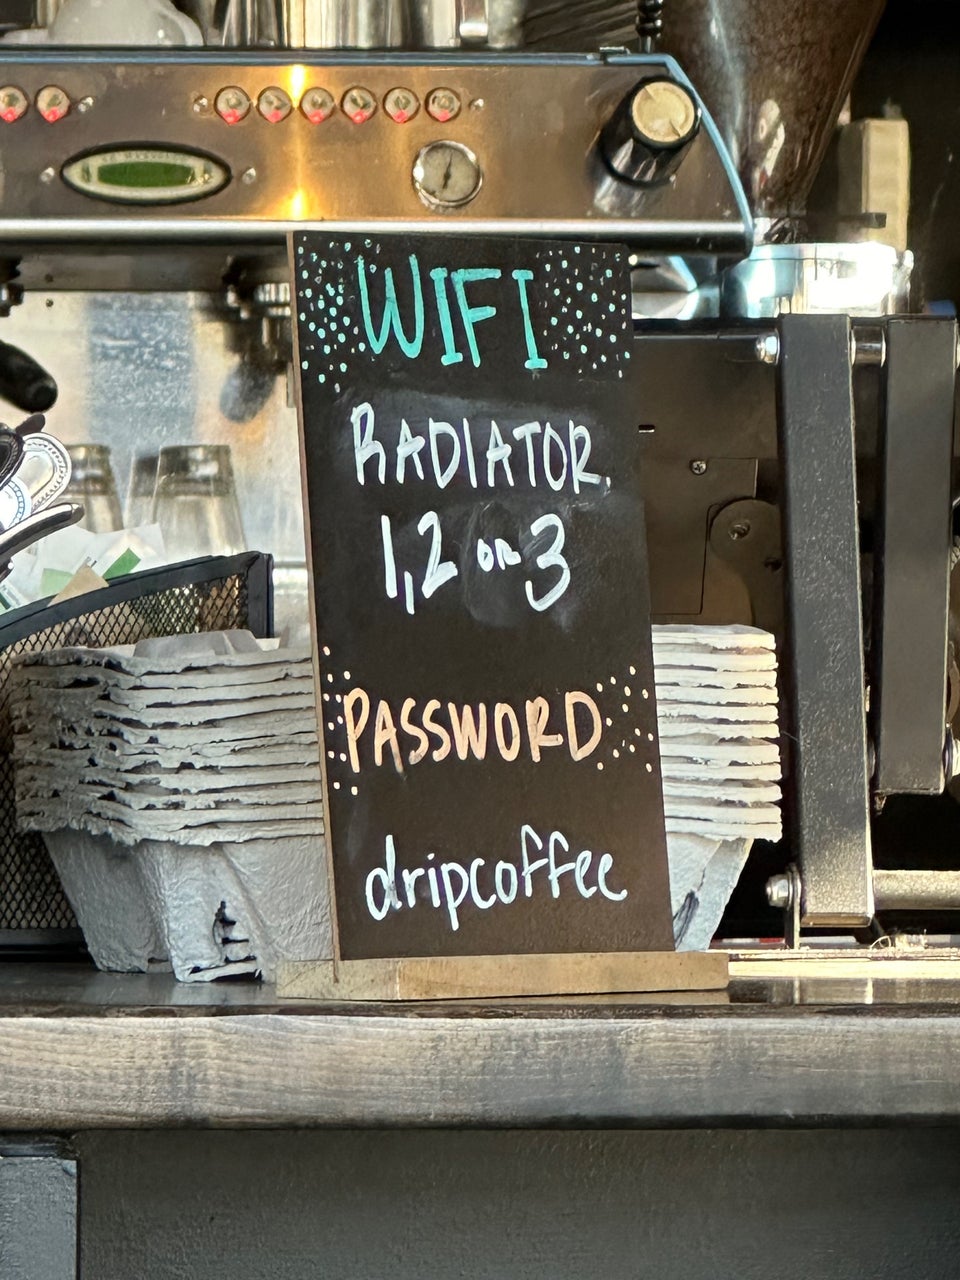 WIFI
RADIATOR
1,2 OR 3
PASSWORD
dripcoffee